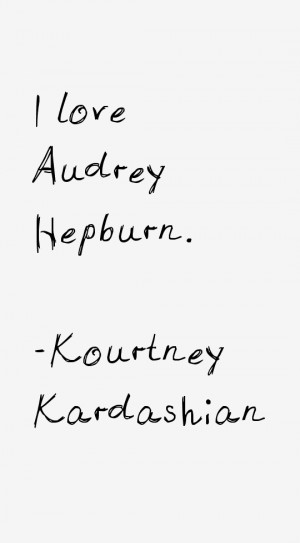 I love
Audrey
Hepburn.
-Kourtney
Kardashian